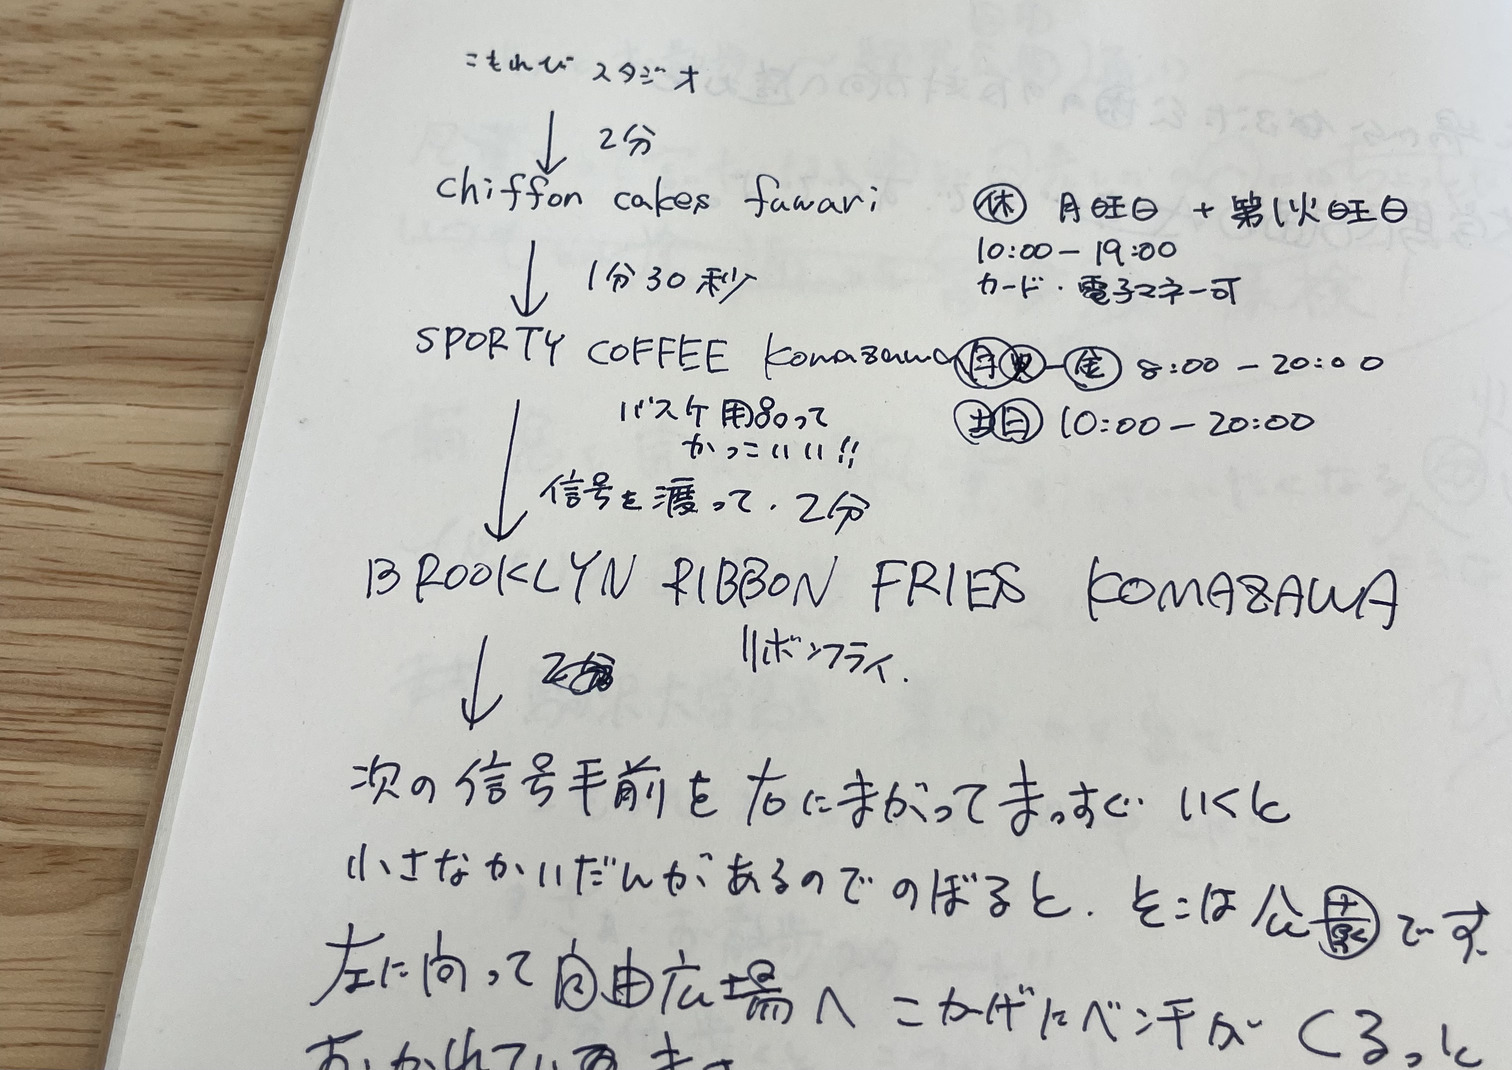 こもれび スタジオ
↓ 2分
chiffon cakes fuwari
㊡ 月曜日 + 第1火曜日
10:00 - 19:00
カード・電子マネー可
↓ 1分30秒
SPORTY COFFEE Komazawa
㊊㊋-㊎ 8:00 - 20:00
㊏㊐ 10:00 - 20:00
バスケ用品って
かっこいい!!
↓ 信号を渡って、2分
BROOKLYN RIBBON FRIES KOMAZAWA
リボンフライ.
↓ 2分
次の信号手前を右にまがってまっすぐ いくと
小さなかいだんがあるのでのぼると、そこは公園です
左に向って自由広場へ こかげにベンチが くるっと
おかれています